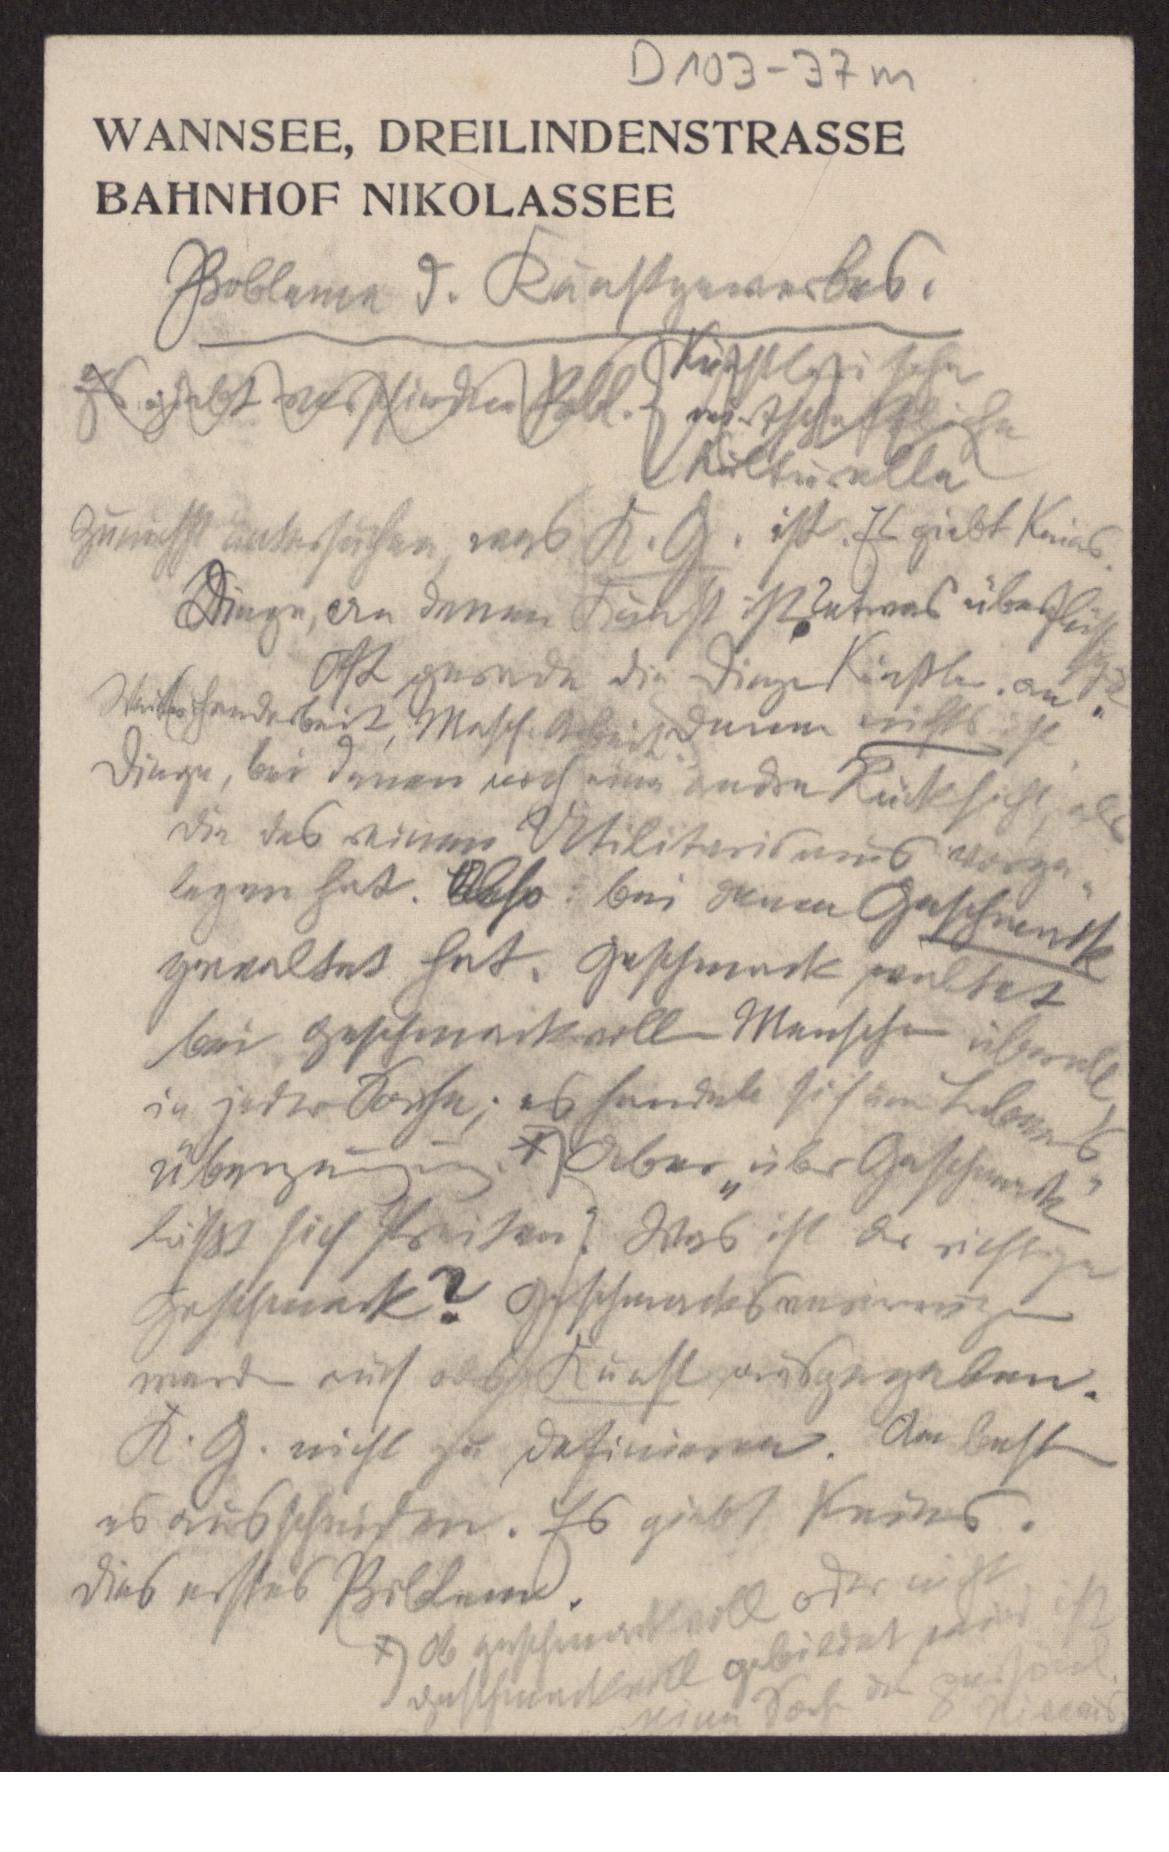 D 103-37 m
WANNSEE, DREILINDENSTRASSE
BAHNHOF NIKOLASSEE
Probleme d. Kunstgewerbes.
Es giebt verschiedene Probl.
Künstlerische
wirtschaftliche
Kulturelle
Zunächst untersuchen, was K. G. ist. Es giebt Keines.
Dinge, an denen Kunst ist? etwas überflüssiges?
Oft gerade die Dinge Künstler. an
handarbeit, Masch. Arbeit denen nichts ist
Dinge, bei denen noch eine andre Rücksicht, als
die des reinen Utilitarismus vorge-
legen hat. Also: bei denen Geschmack
gewaltet hat. Geschmack waltet
bei geschmackvollen Menschen überall,
in jeder Sache; es handelt sich um Lebens
überzeugung. *) Aber „über Geschmack"
läßt sich streiten? Was ist der richtige
Geschmack? Geschmacksverirrungen
werden auch als Kunst ausgegeben.
K. G. nicht zu definieren. Am besten
es ausscheiden. Es giebt Keines.
dies erstes Problem.
*) Ob geschmackvoll oder nicht
geschmackvoll gebildet wird ist
eine Sache des persönl.